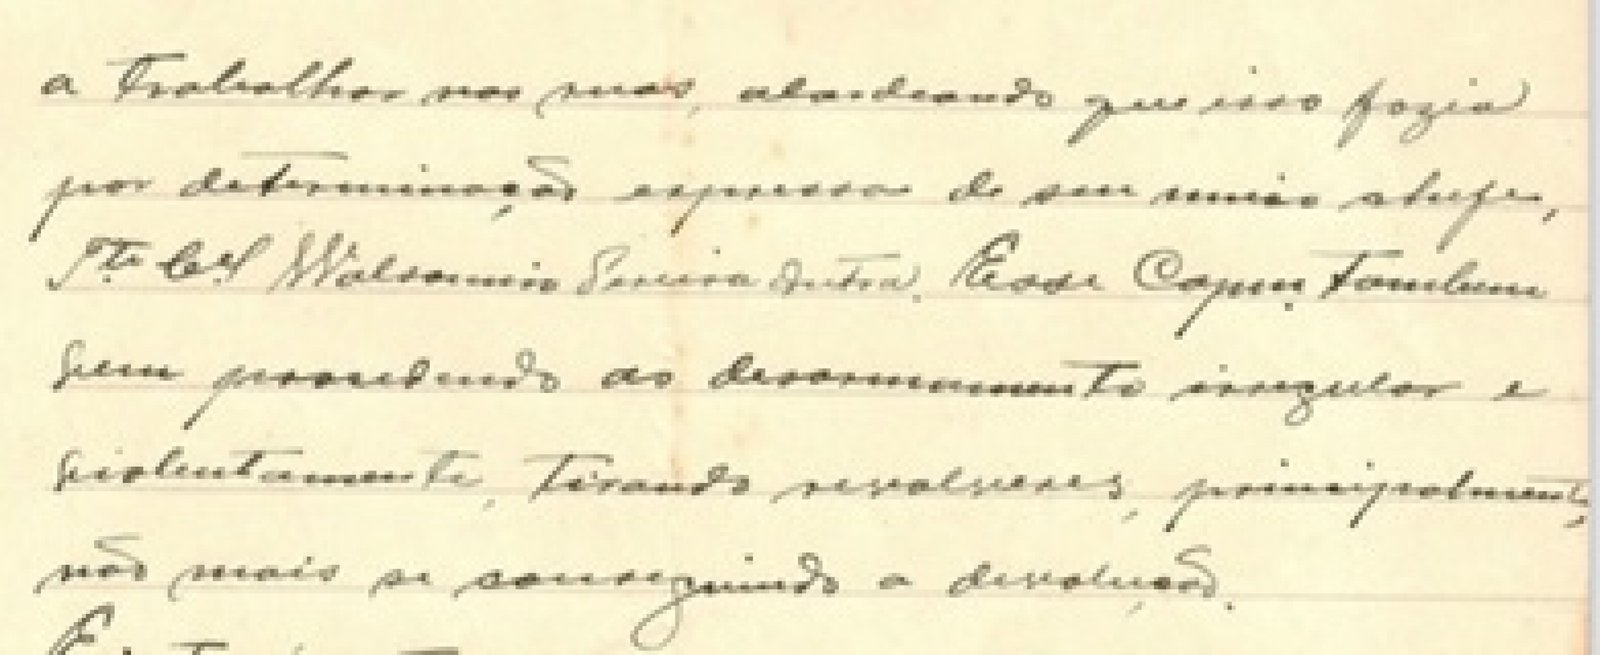 a trabalhar nas ruas, alardeando que isso fazia
por determinação expressa de seu unico chefe,
Tte Cel Walsumiro Pereira Dutra. Esse Capm. tambem
vem procedendo ao desarmamento irregular e
violentamente, tirando revolveres, principalmente,
não mais se conseguindo a devolução.